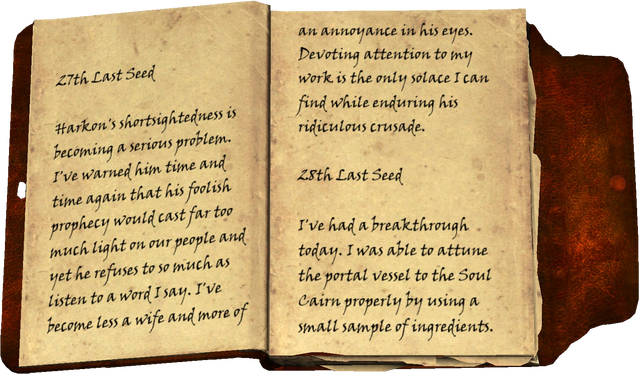 27th Last Seed
Harkon's shortsightedness is
becoming a serious problem.
I've warned him time and
time again that his foolish
prophecy would cast far too
much light on our people and
yet he refuses to so much as
listen to a word I say. I've
become less a wife and more of
an annoyance in his eyes.
Devoting attention to my
work is the only solace I can
find while enduring his
ridiculous crusade.
28th Last Seed
I've had a breakthrough
today. I was able to attune
the portal vessel to the Soul
Cairn properly by using a
small sample of ingredients.